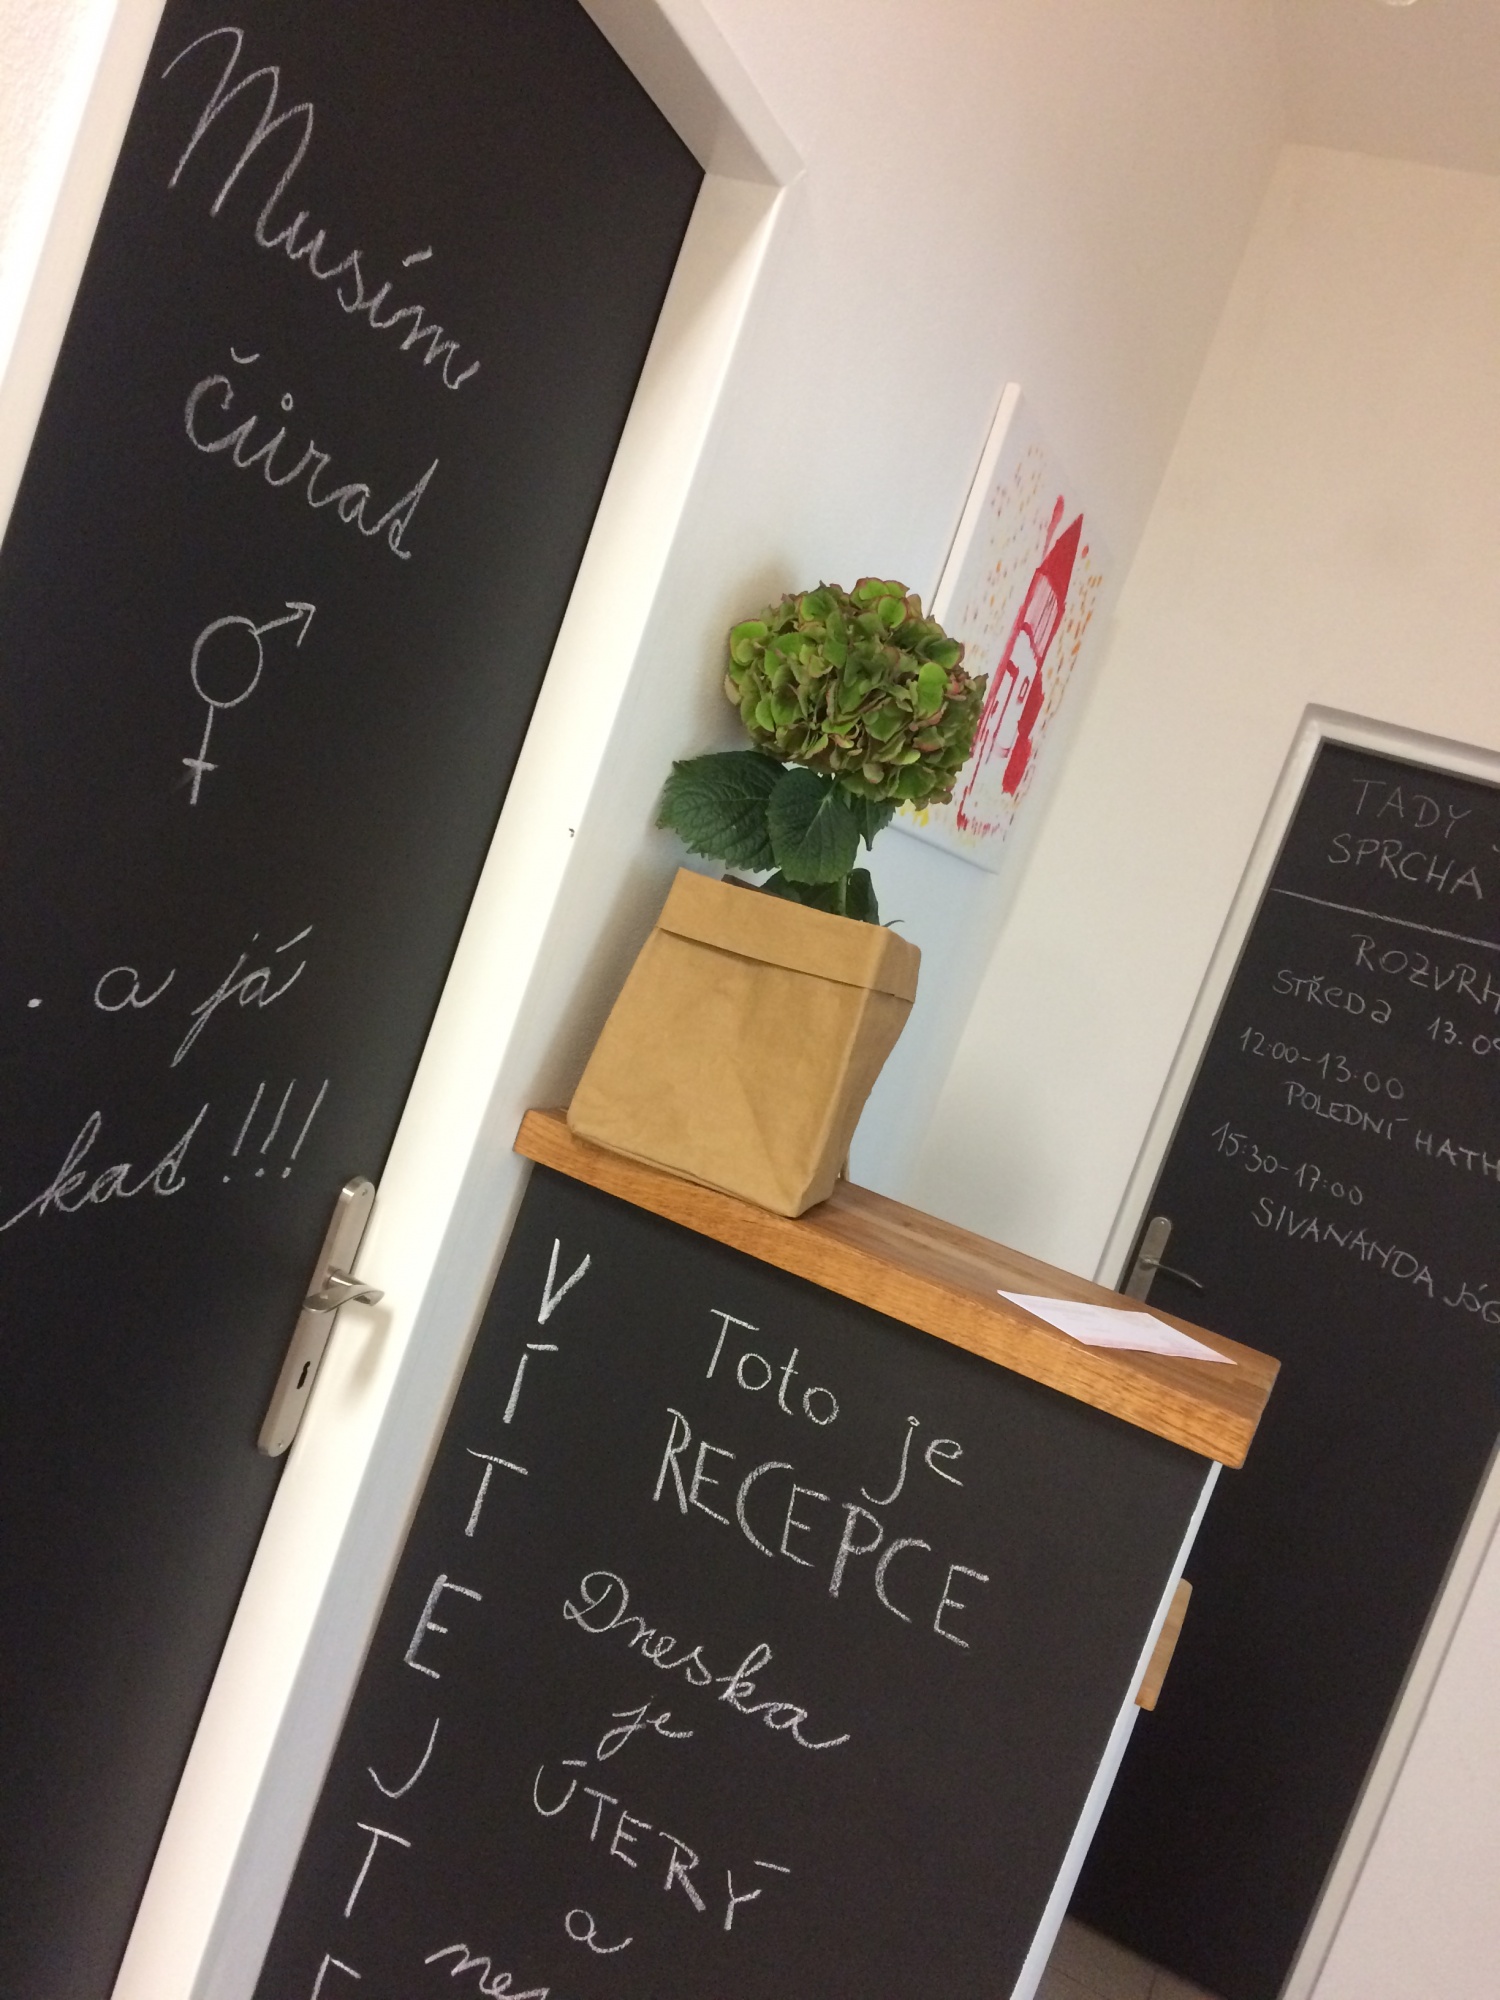 Musím
čůrat
. a já
kat!!!
VÍTEJTE
Toto je
RECEPCE
Dneska
je
ÚTERÝ
a
TADY
SPRCHA
ROZVRH
STŘEDA 13.09
12:00-13:00
POLEDNÍ HATH
15:30-17:00
SIVANANDA JÓG